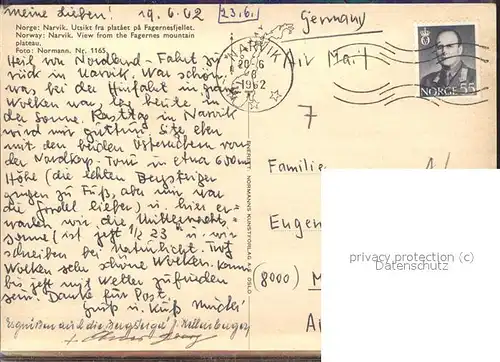 meine Lieben! 19.6.62 23.6.
Germany
Norge: Narvik. Utsikt fra platået på Fagernesfjellet.
Norway: Narvik. View from the Fagernes mountain
plateau.
Foto: Normann. Nr. 1165.
Heil von Nordland-Fahrt zu-
rück in Narvik. War schön,
was bei der Hinfahrt in grau
Wolken war, lag heute in
der Sonne. Rasttag in Narvik
wird mir guttun. Sitze eben
mit den beiden Österreichern von
der Nordkap-Tour in etwa 650 m
Höhe (die echten Bergsteiger
gingen zu Fuß, aber mir war
die Gondel lieber) u. hier er-
warten wir die Mitternachts-
sonne (ist jetzt 1/2 23h u. wir
schreiben bei Naturlicht. Trotz
Wolken sehr schöne Wolken. Kann
bis jetzt mit Wetter zufrieden
sein. Danke für Post.
Gruß u. Kuß Mutti!
NARVIK
20-6
1962
Air Mail
NORGE 55
7
Familie
Eugen
(8000) M
ENERETT: NORMANNS KUNSTFORLAG A/S, OSLO
privacy protection (c)
Datenschutz